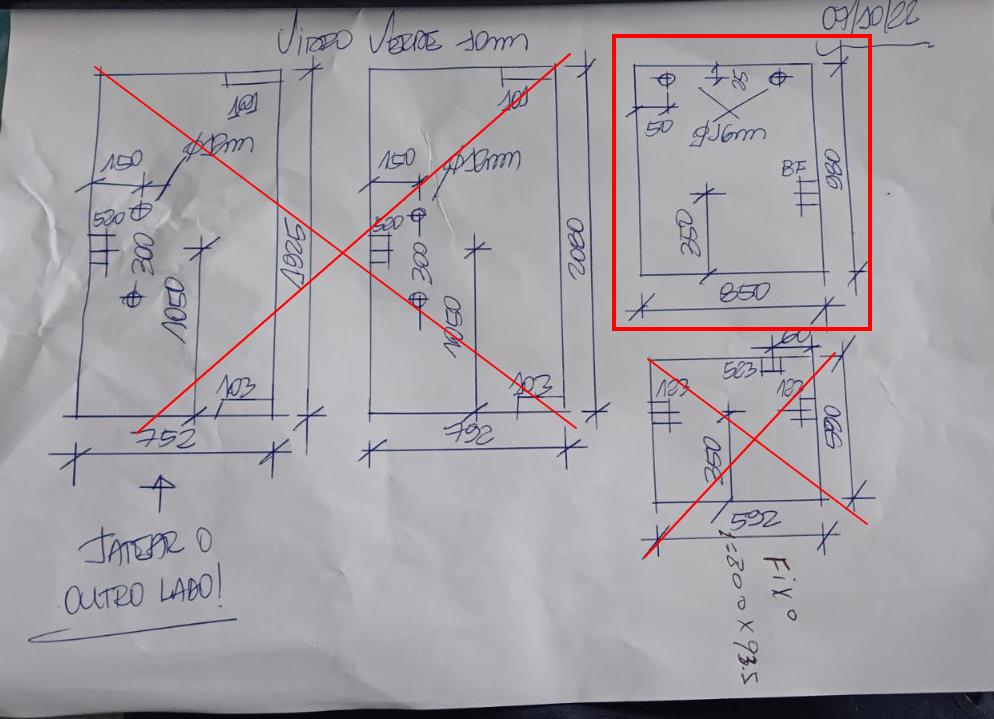 07/10/22
VIDRO VERDE 10mm
101
150
Ø12mm
520
300
1050
1925
103
752
JATEAR O
OUTRO LADO!
101
150
Ø12mm
520
300
1050
2080
103
792
50
25
Ø16mm
BF
350
980
850
60
523
123
123
350
590
592
Fixo
1=300 x 93.5